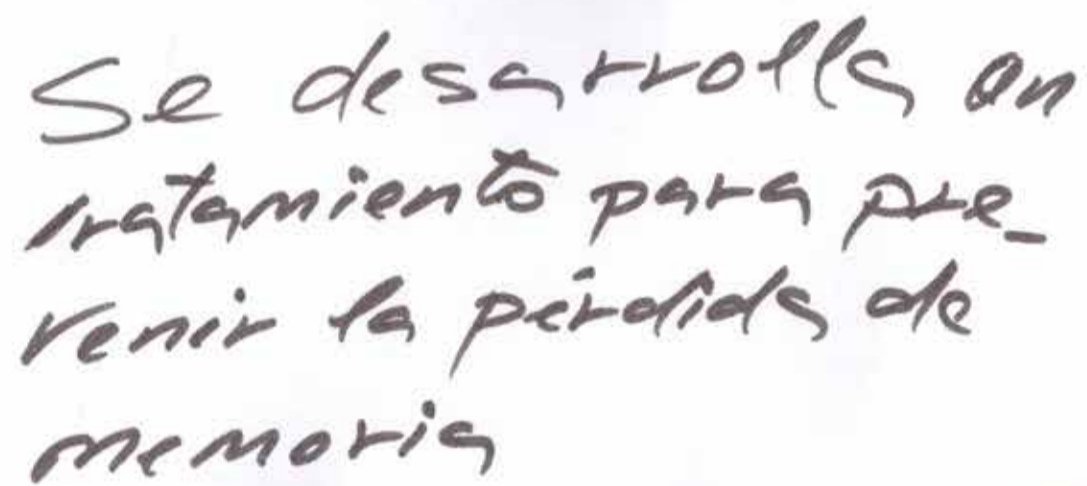 Se desarrolla un
tratamiento para pre-
venir la pérdida de
memoria